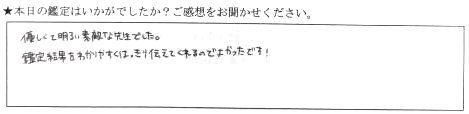 ★本日の鑑定はいかがでしたか？ご感想をお聞かせください。
優しくて明るい素敵な先生でした。
鑑定結果をわかりやすくはっきり伝えてくれるのでよかったです！